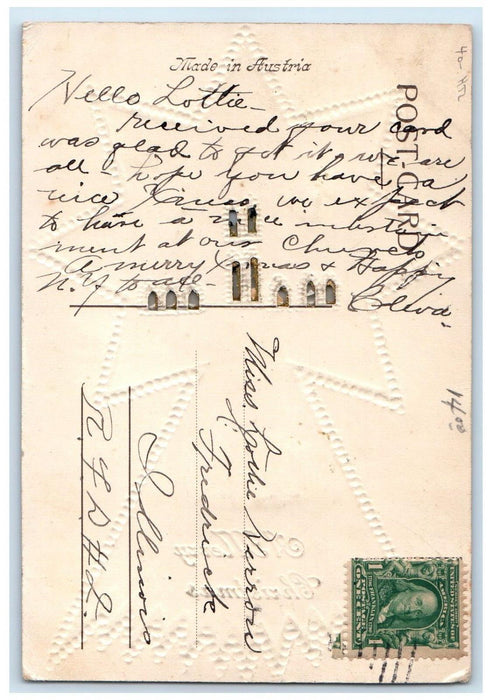 Made in Austria
POST CARD
Hello Lottie -
received your card
was glad to get it we are
all - hope you have a
nice Xmas, we expect
to have a nice instru
ment at our Church
A merry Xmas & Happy
N. Y to all -
Oliva -
Miss Lottie
Fredrick
Illinois
R. F. D # 2.
A Merry
Christmas
1